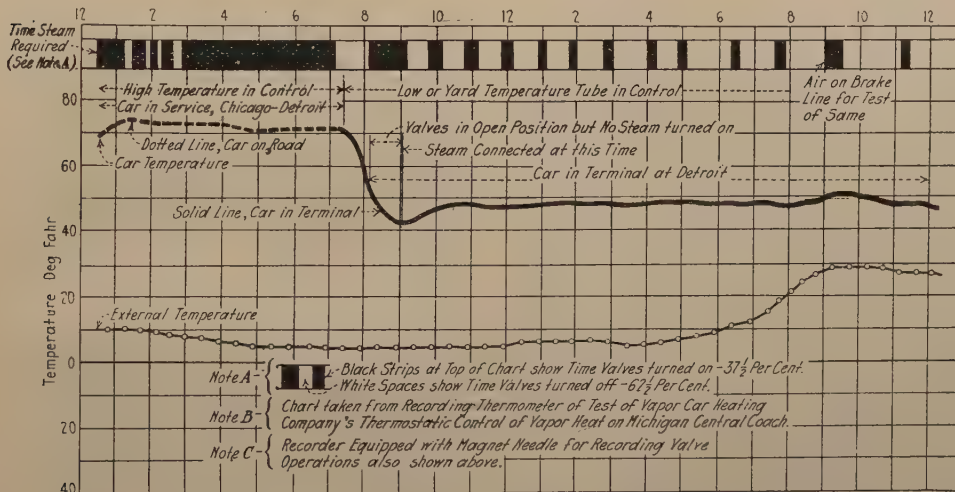 12 2 4 6 8 10 12 2 4 6 8 10 12
Time Steam
Required
(See Note A)
High Temperature in Control
Low or Yard Temperature Tube in Control
Air on Brake
Line for Test
of Same
Car in Service, Chicago-Detroit
Valves in Open Position but No Steam turned on
Dotted Line, Car on Road
Steam Connected at this Time
Car Temperature
Car in Terminal at Detroit
Solid Line, Car in Terminal
80
60
40
20
0
20
40
Temperature Deg Fahr
External Temperature
Note A
Black Strips at Top of Chart show Time Valves turned on -37½ Per Cent.
White Spaces show Time Valves turned off -62½ Per Cent.
Note B
Chart taken from Recording Thermometer of Test of Vapor Car Heating
Company's Thermostatic Control of Vapor Heat on Michigan Central Coach.
Note C
Recorder Equipped with Magnet Needle for Recording Valve
Operations also shown above.
12 2 4 6 8 10 12 2 4 6 8 10 12